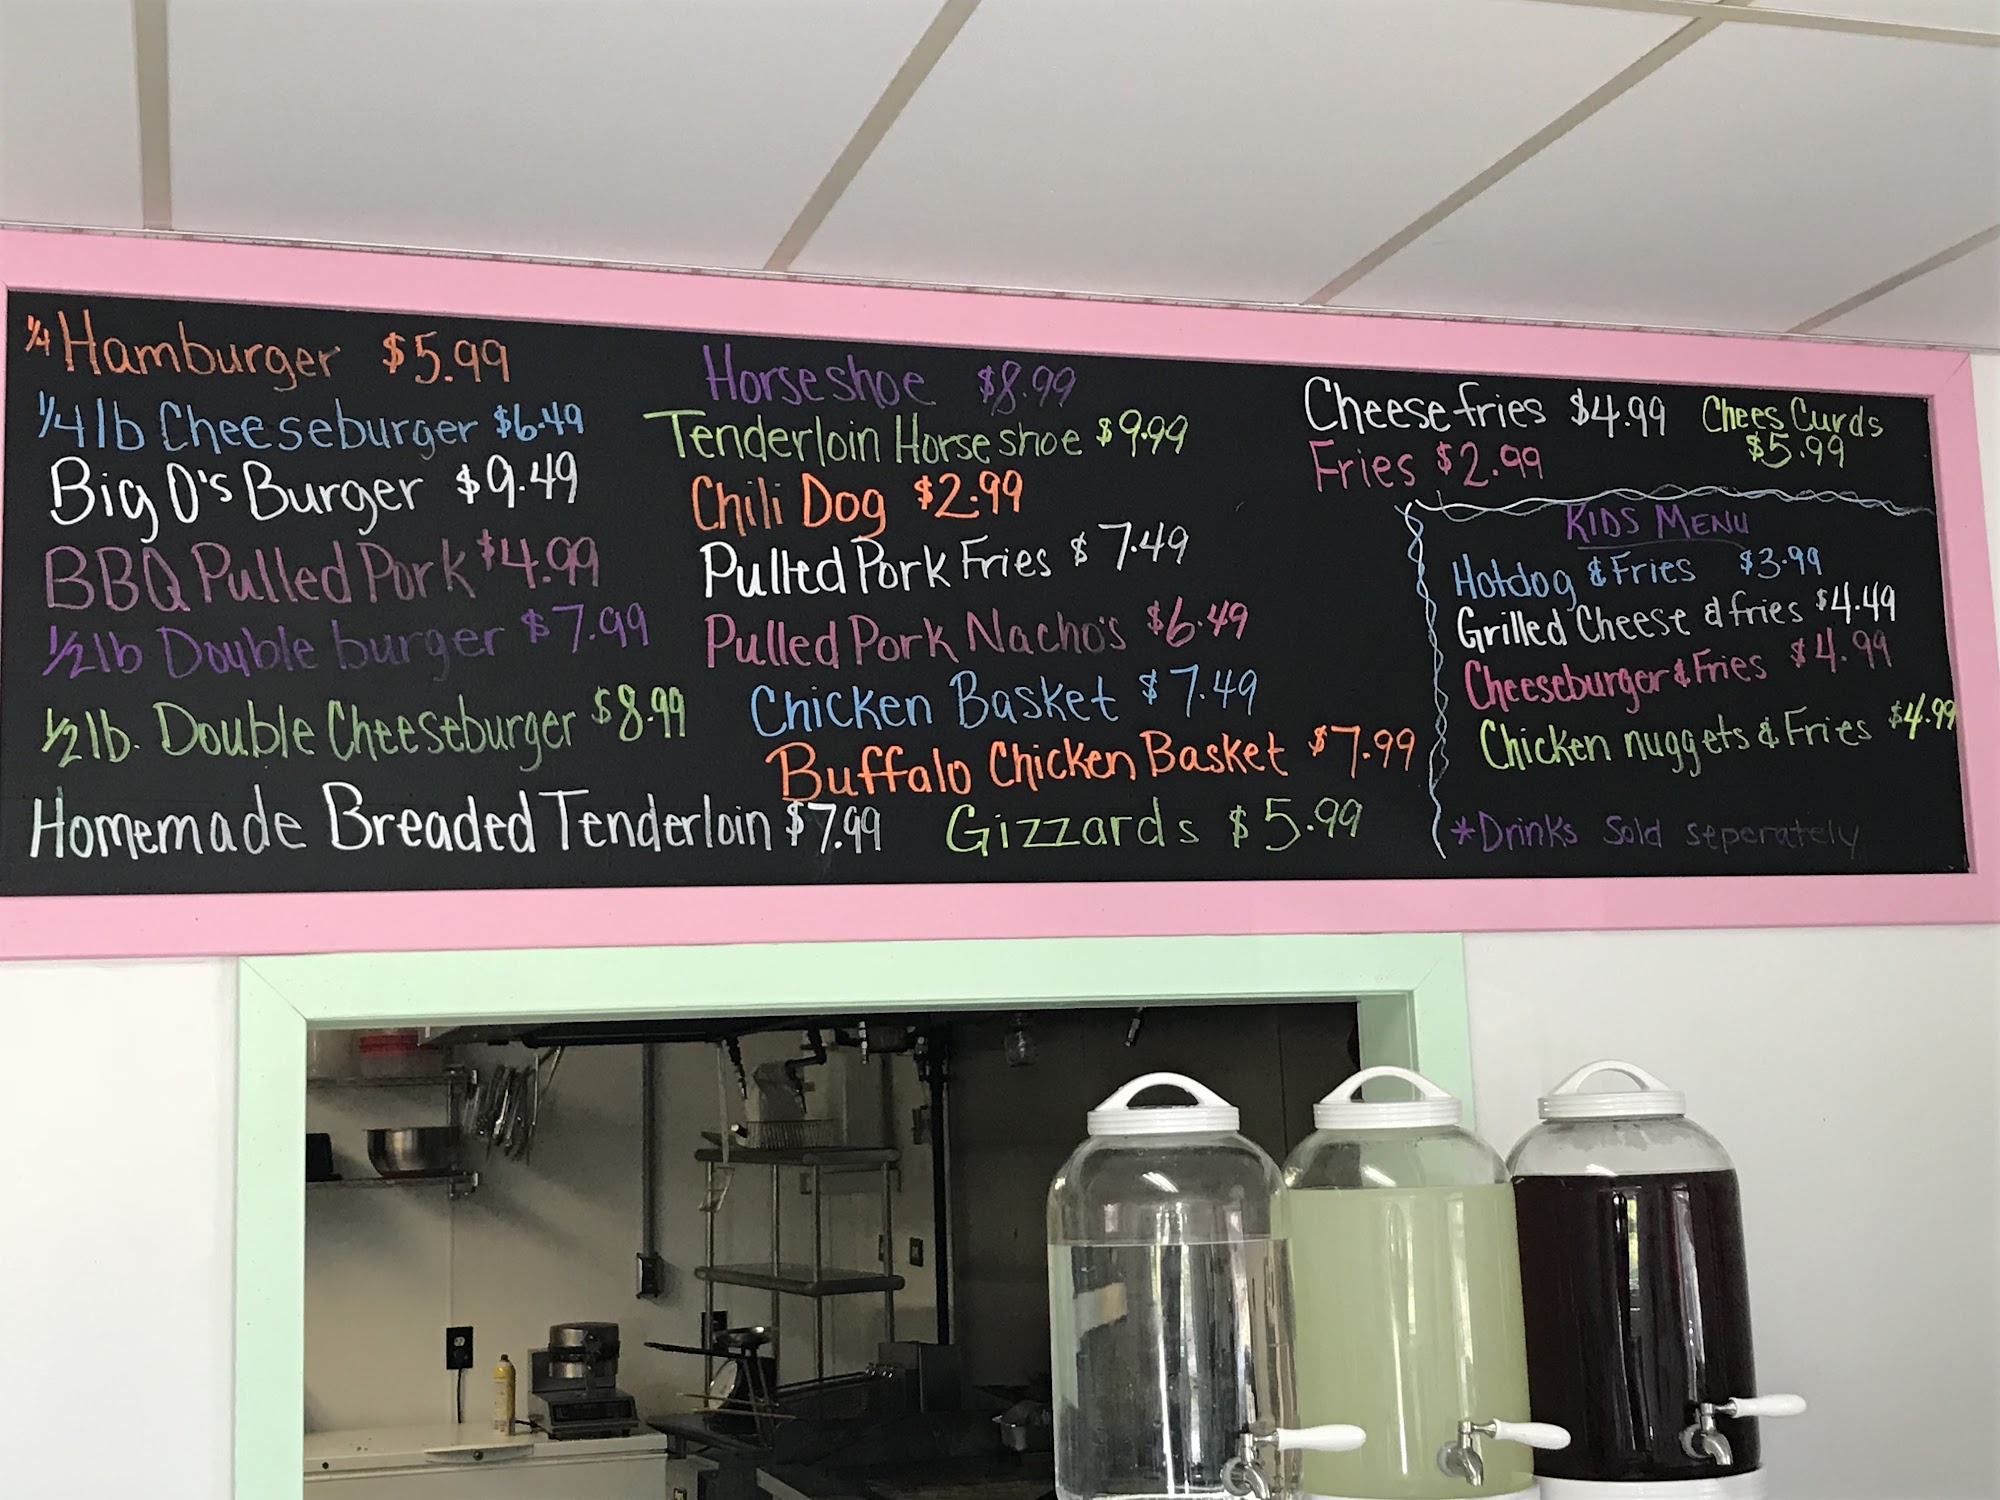 1/4 Hamburger $5.99
1/4 lb Cheeseburger $6.49
Big O's Burger $9.49
BBQ Pulled Pork $4.99
1/2 lb Double burger $7.99
1/2 lb. Double Cheeseburger $8.99
Homemade Breaded Tenderloin $7.99
Horseshoe $8.99
Tenderloin Horseshoe $9.99
Chili Dog $2.99
Pulled Pork Fries $7.49
Pulled Pork Nacho's $6.49
Chicken Basket $7.49
Buffalo Chicken Basket $7.99
Gizzards $5.99
Cheese fries $4.99
Fries $2.99
Chees Curds
$5.99
KIDS MENU
Hotdog & Fries $3.99
Grilled Cheese & fries $4.49
Cheeseburger & Fries $4.99
Chicken nuggets & Fries $4.99
*Drinks Sold seperately